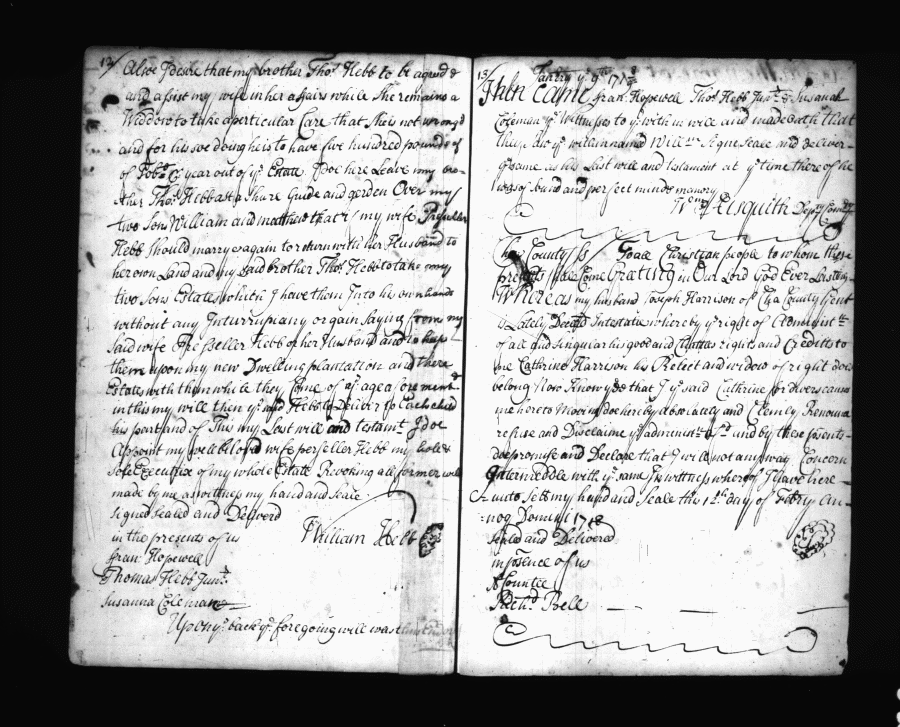 12/ Also I desire that my brother Thos. Hebb to be agured &
and assist my wife in her afairs while she remains a
Widdow to take a perticular Care that she is not wrong'd
and for his soe doing he is to have five hundred pounds of
of Tobo. ye year out of ye Estate I doe hire Leave my bro-
ther Thos. Hebb as to share Guide and gorden Over my
two Sons William and matthew that if my wife Prisseller
Hebb should marry again to return with her Husband to
her own Land and my said brother Thos. Hebb to take my
two Sons Estates which I have them Into his own hands
without any Inturruptiany or gain saying from my
said wife Prisseller Hebb or her Husband and to keep
them upon my new Dwelling plantation and there
Estates with them while they Come of ye age afore ment.
in this my will then ye sd Hebb to Deliver to Each child
his part and of This my Last will and testamt. I doe
Appoint my well beloved wife perseller Hebb my hole &
Sole Executrix of my whole Estate Revoking all former will
made by me as wittness my hand and Seale
Signed sealed and Deliverd
in the presents of us William Hebb
Fran: Hopewell
Thomas Hebb Junr.
Susanna Coleman
Upon ye back ye foregoing will was
13/ Janry ye 9th 171
Then Came Fran. Hopewell Thos. Hebb Junr. & Susanah
Coleman ye Wittnesses to ye within will and made oath that
they saw ye within named Willm. Signe seale and deliver
ye same as his Last will and testament at ye time there of he
was of sound and perfect minde memory
Wm. Asquith Depty Comry
Cha County Ss To all Christian people to whom these
presents shall Come Greeting in Our Lord God Ever Lasting
Whereas my husband Joseph Harrison of Cha County Gent
is Lately Deced Intestate whereby ye right of Administr
of all and singular his goods and Chattas rights and Credits to
me Cathrine Harrison his Relect and widow of right does
belong Now Know yee that I ye said Cathrine for divers causes
me hereto Moving doe hereby absolutely and Clearly Renounce
refuse and Disclaime ye administr. and by these presents
doe promise and Declare that I will not any way Concern
or Intermeddle with ye same In wittness whereof I have here
unto Sett my hand and Seale this 12th day of Febry An-
nog Domini 1718
seald and Delivered
in presence of us
Richd. Boell